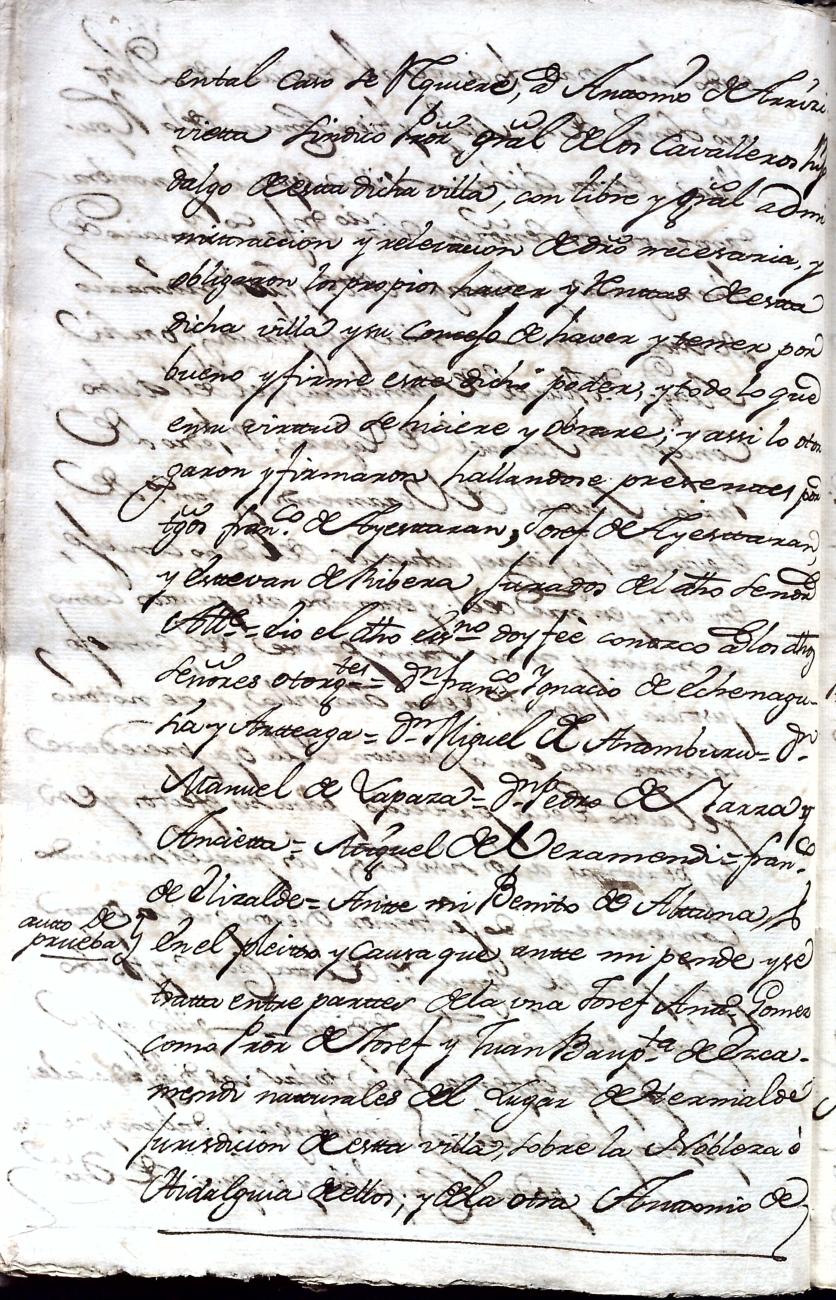 ental caso se Rquiere, a Antonio de Arrizi
vieta sindico Pror gral de los Cavalleros hijos
dalgo de esta dicha villa, con libre y gral admi
nistraccion y relevacion de dro necesaria, y
obligaron los propios haver y Renttas de esta
dicha villa y su Concejo de haver y tener por
bueno y firme este dicho poder, y todo lo que
en su virttud se hiciere y obrare; y assi lo otor
garon y firmaron hallandose presenttes por
tgos. franco. de Ayestaran, Josef de Ayestaran,
y Estevan de Ribera Jurados del dho señor
Alle = E io el dho essno doy fee conozco a los dhos
señores otorgtes = Dn. franco. Ygnacio de Echenagu-
sia y Artteaga = Dn. Miguel de Aramburu = Dn.
Manuel de Zapaza = Dn. Pedro de Yarza y
Ancietta = Miguel de Veramendi = franco.
de Elizalde = Antte mi Benito de Alttuna
autto de
prueba
En el pleitto y causa que antte mi pende y se
tratta entre parttes de la una Josef Antto. Gomez
como Pror de Josef y Juan Baupta. de Erca-
mendi naturales del Lugar de Hernialde
Jurisdicion de esta villa, sobre la Nobleza e
Hidalguia de ellos; y de la otra Antonio de